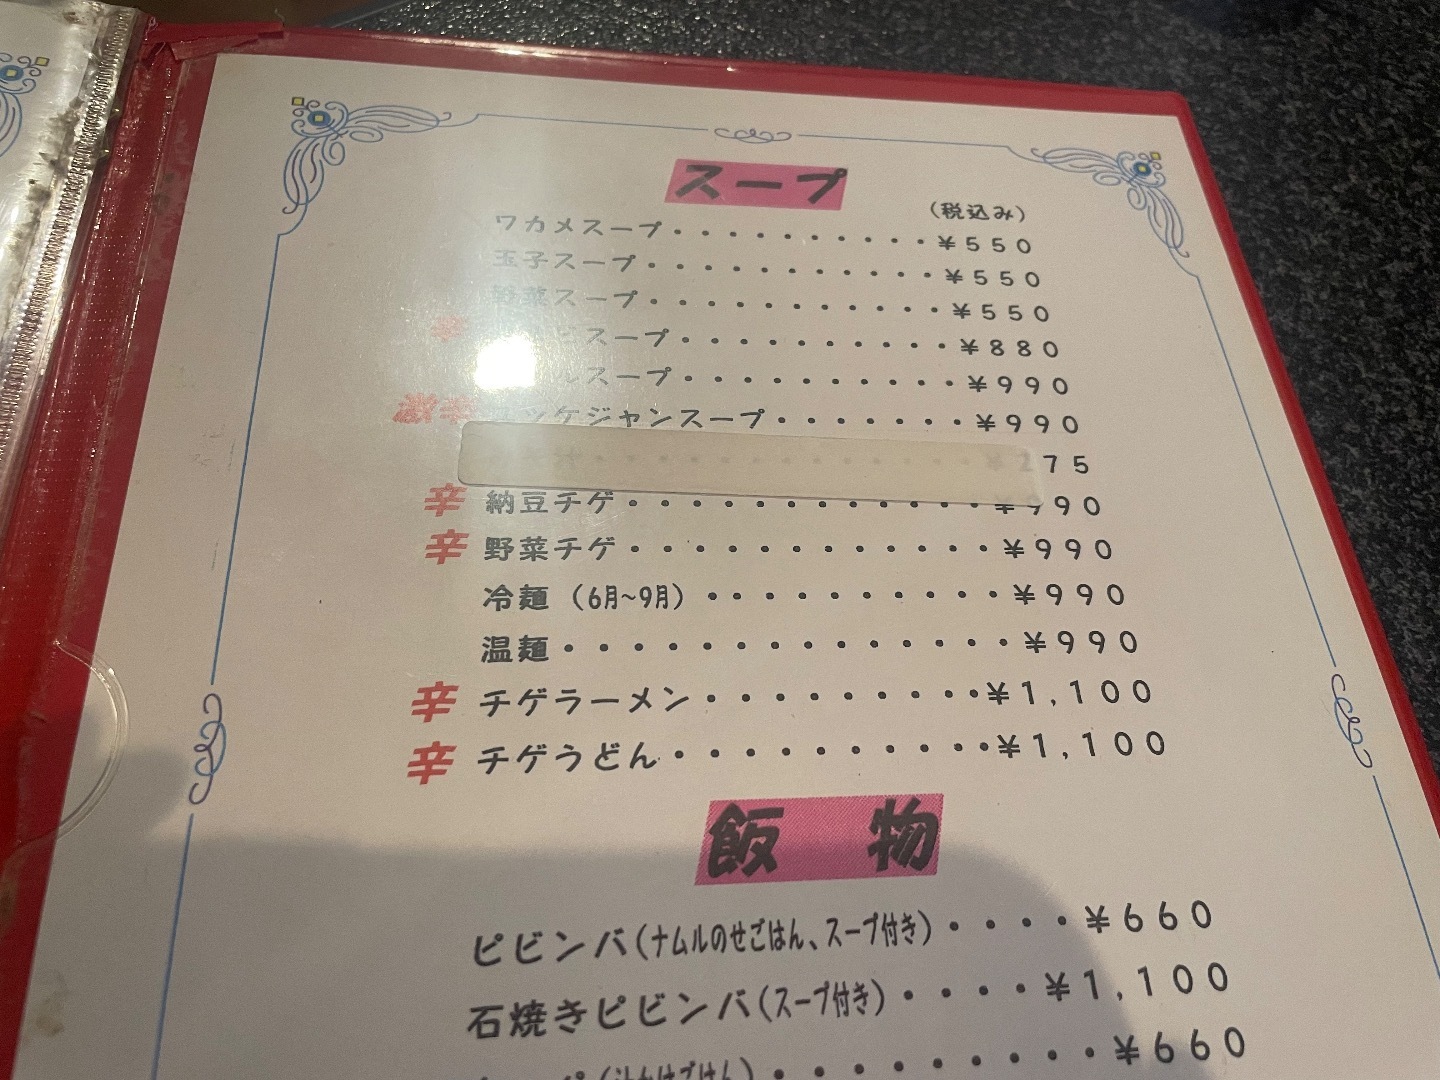 スープ
(税込み)
ワカメスープ・・・・・・・・・・¥550
玉子スープ・・・・・・・・・・・¥550
野菜スープ・・・・・・・・・・・¥550
辛 スープ・・・・・・・・・・¥880
スープ・・・・・・・・・・¥990
激辛 ユッケジャンスープ・・・・・・・¥990
75
辛 納豆チゲ・・・・・・・・・・・・¥990
辛 野菜チゲ・・・・・・・・・・・・¥990
冷麺(6月~9月)・・・・・・・・・・¥990
温麺・・・・・・・・・・・・・・¥990
辛 チゲラーメン・・・・・・・・・¥1,100
辛 チゲうどん・・・・・・・・・・¥1,100
飯 物
ピビンバ(ナムルのせごはん、スープ付き)・・・・¥660
石焼きピビンバ(スープ付き)・・・・¥1,100
¥660